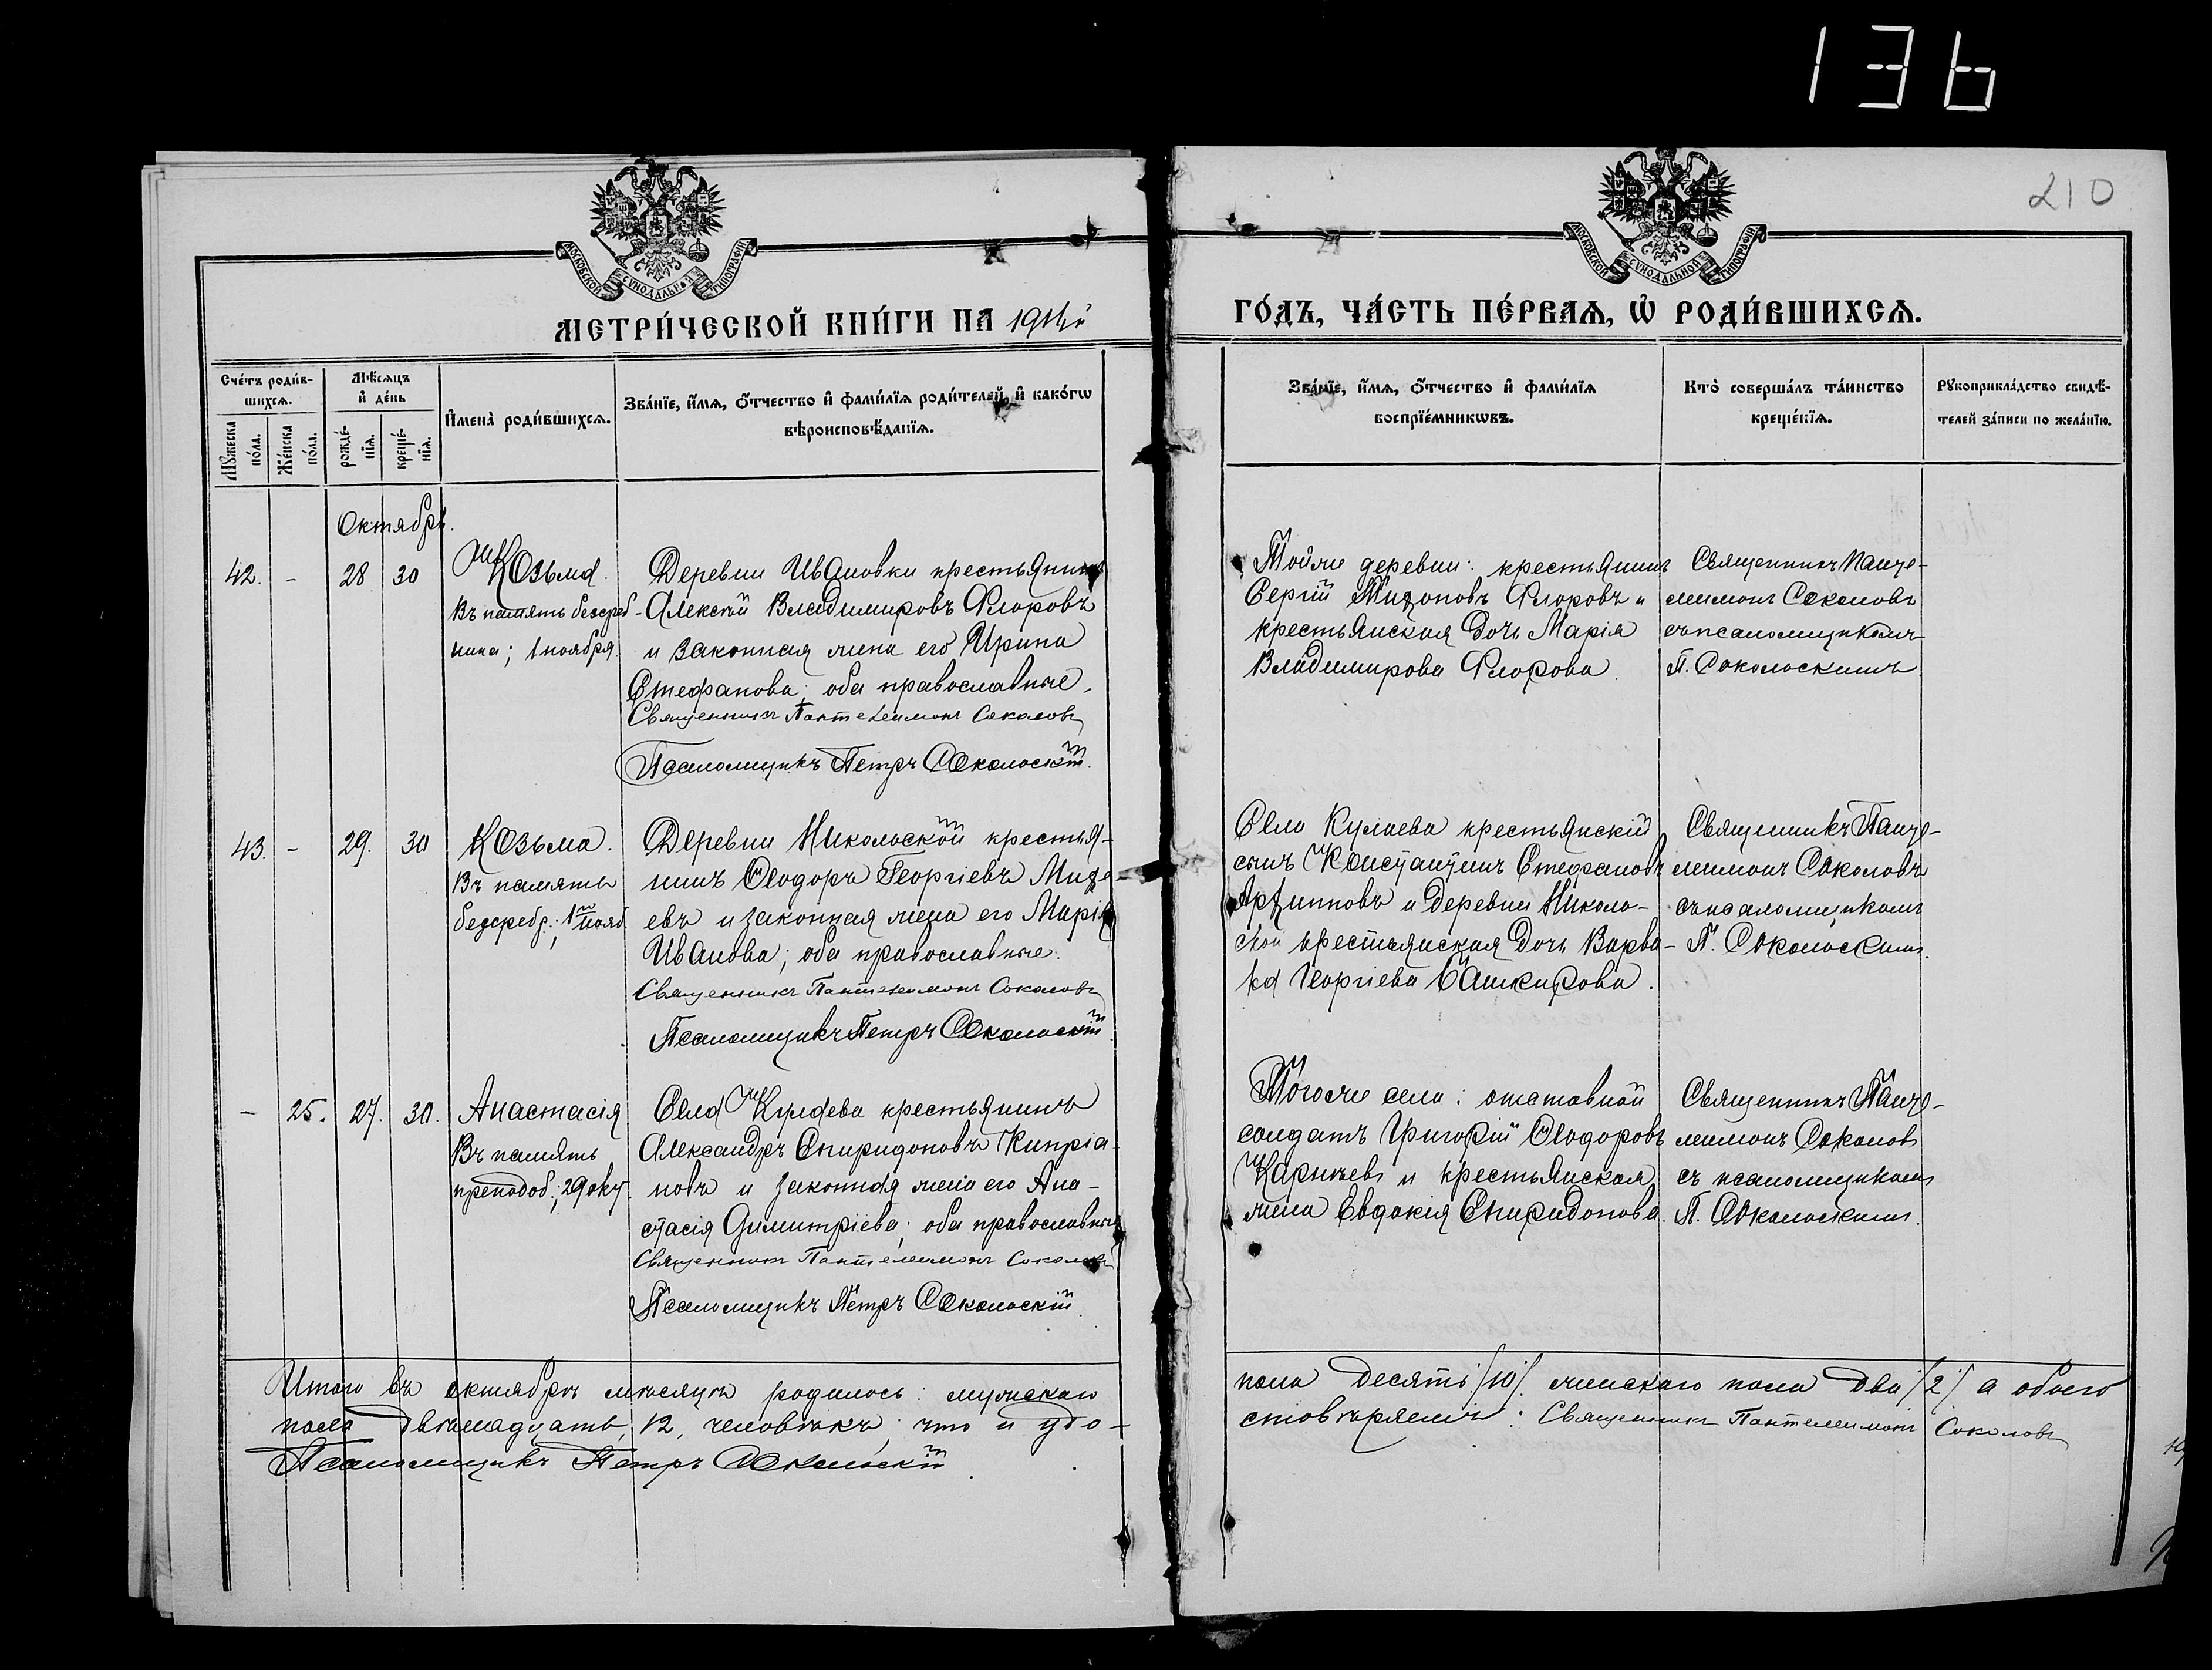 136
210
МОСКОВСКОЙ СѴНОДАЛЬНОЙ ТИПОГРАФІИ
МОСКОВСКОЙ СѴНОДАЛЬНОЙ ТИПОГРАФІИ
МЕТРИ́ЧЕСКОЙ КНИ́ГИ НА 1914й
ГО́ДЪ, ЧА́СТЬ ПЕ́РВАѦ, Ѽ РОДИ́ВШИХСѦ.
Сче́тъ роди́в-
шихсѧ.
Мѣ́сѧцъ
и҆ де́нь
Мꙋ́жеска
по́ла.
Же́нска
по́ла.
рожде́-
нїѧ.
креще́-
нїѧ.
И҆мена̀ роди́вшихсѧ.
Зва́нїе, и҆́мѧ, ѻ҆́тчество и҆ фами́лїѧ роди́телей, и҆ како́гѡ
вѣроисповѣ́данїѧ.
Зва́нїе, и҆́мѧ, ѻ҆́тчество и҆ фами́лїѧ
воспрїе́мникѡвъ.
Кто̀ соверша́лъ та́инство
креще́нїѧ.
Рꙋкоприкла́дство свидѣ́-
телей за́писи по жела́нїю.
Октябрь.
42. - 28 30
Козьма.
Въ память безсреб-
ника; 1 ноября.
Деревни Ивановки крестьянинъ
Алексѣй Владимировъ Флоровъ
и законная жена его Ирина
Стефанова; оба православные.
Священникъ Пантелеимонъ Соколовъ
Псаломщикъ Петръ Сокольскій.
Тойже деревни: крестьянинъ
Сергій Флоровъ и
крестьянская дочь Марія
Владимирова Флорова.
Священникъ Панте-
леимонъ Соколовъ
съ псаломщикомъ
П. Сокольскимъ
43. - 29. 30
Козьма.
Въ память
безсребр.; 1го нояб.
Деревни Никольской крестья-
нинъ Ѳеодоръ Георгіевъ
евъ и законная жена его Марія
Иванова; оба православные.
Священникъ Пантелеимонъ Соколовъ
Псаломщикъ Петръ Сокольскій.
Села Кулаева крестьянскій
сынъ Константинъ Стефановъ
и деревни Николь-
ской крестьянская дочь Варва-
ра Георгіева Башкирова.
Священникъ Панте-
леимонъ Соколовъ
съ псаломщикомъ
П. Сокольскимъ.
- 25. 27. 30.
Анастасія
Въ память
преподоб.; 29 окт.
Села Кулаева крестьянинъ
Александръ Спиридоновъ Кипріа-
новъ и законная жена его Ана-
стасія Димитріева; оба православные
Священникъ Пантелеимонъ Соколовъ
Псаломщикъ Петръ Сокольскій.
Тогоже села: отставной
солдатъ Григорій Ѳеодоровъ
и крестьянская
жена Евдокія Спиридонова.
Священникъ Панте-
леимонъ Соколовъ
съ псаломщикомъ
П. Сокольскимъ.
Итого въ октябрѣ мѣсяцѣ родилось: мужскаго
пола десять /10/. женскаго пола два /2/ а обоего
пола двѣнадцать, 12, человѣкъ; что и удо-
стовѣряемъ: Священникъ Пантелеимонъ Соколовъ
Псаломщикъ Петръ Сокольскій.